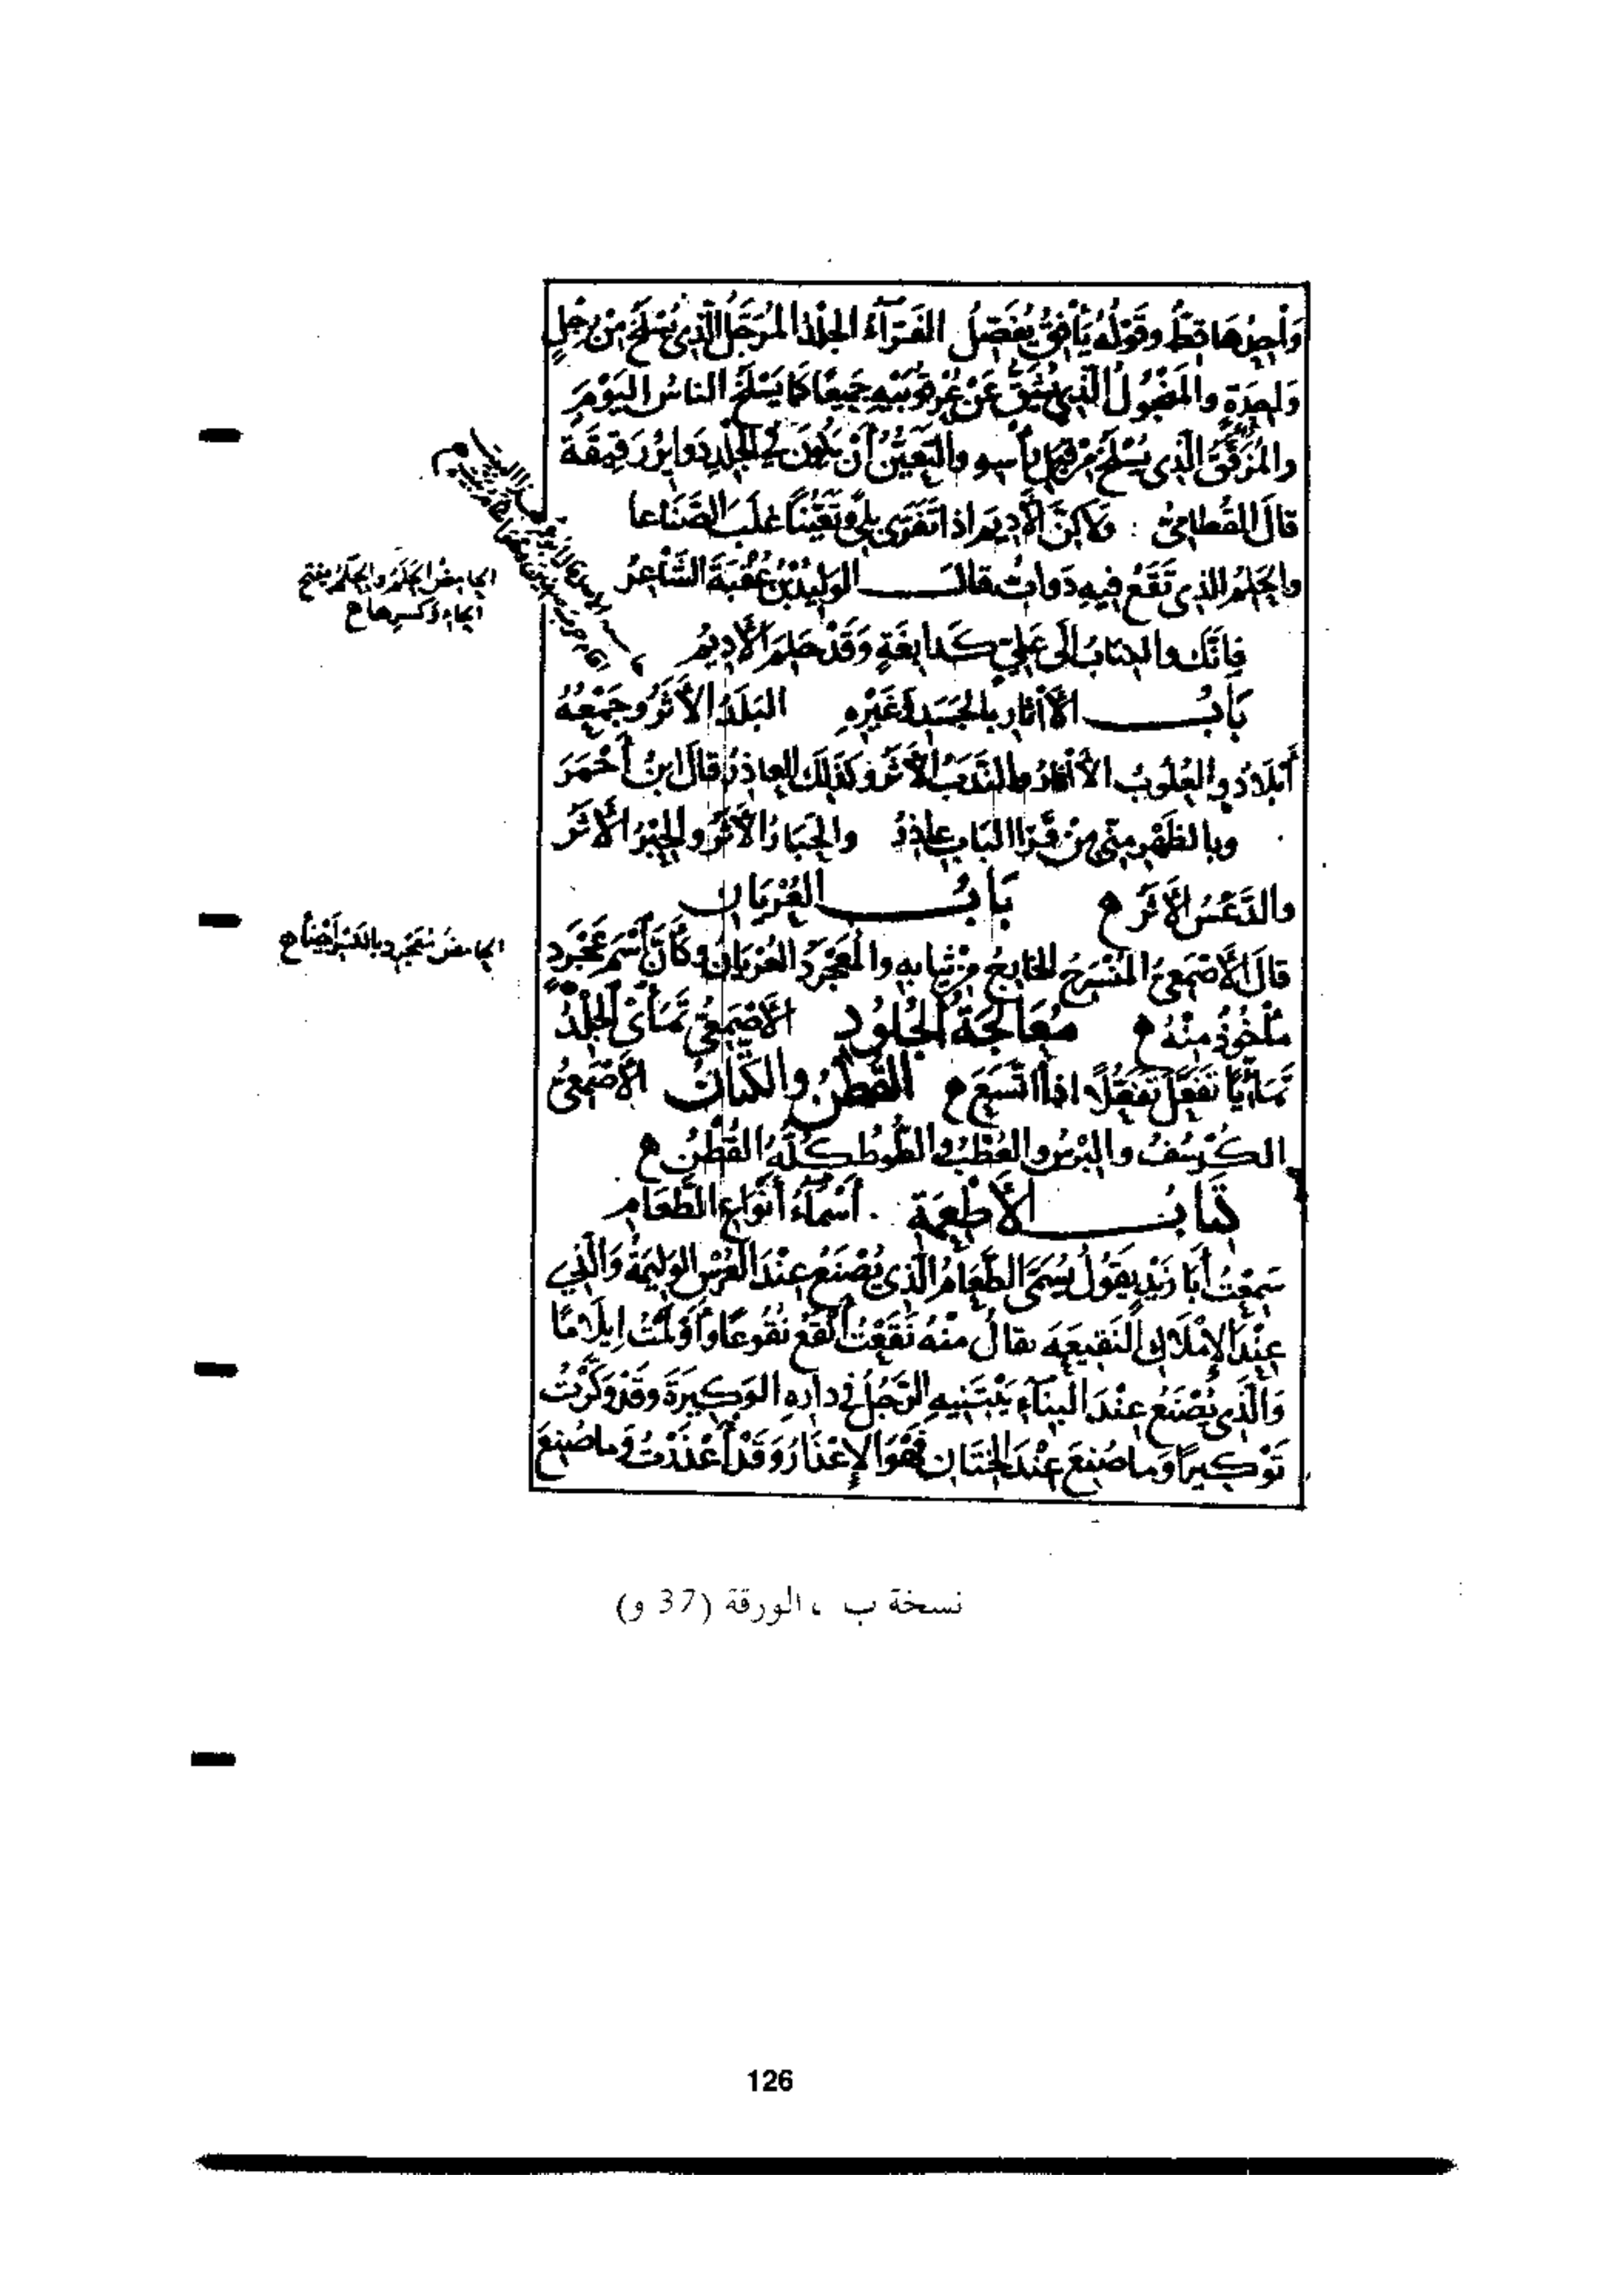 وَاحِدُهَا قِطٌّ وقَوْلُهُ يَأْفِقُ يُفَضِّلُ الفَرَّآءُ الجِلْدُ المُرَجَّلُ الَّذِى يُسْلَخُ مِنْ رِجْلٍ
وَاحِدَةٍ والمَنْجُولُ الَّذِى يُشَقُّ عَنْ عُرْقُوبَيْهِ جَمِيعًا كَمَا يَسْلَخُ الناسُ اليَوْمَ
والمُزَقَّقُ الَّذِى يُسْلَخُ مِنْ قِبَلِ رَأْسِهِ والتَّعَيُّنُ أَنْ يَكُونَ فِى الجِلْدِ دَوَايِرُ رَقِيقَةٌ
قالَ القُطامِىُّ : وَلَاكِنَّ الأَدِيمَ اذا تَفَرَّى بِلًى وتَعَيُّنًا غَلَبَ الصَّنَاعا
والحَلِمُ الذِى تَقَعُ فِيهِ دَوابٌّ قالَ الوَلِيدُ بْنُ عُقْبَةَ الشَّاعِرُ
فإنَّكَ والكِتابَ إلَى عَلِىٍّ كَدابِغَةٍ وَقَدْ حَلِمَ الأَدِيمُ
بَابُ الأَثارِ بالجَسَدِ وغَيْرِهِ البَلَدُ الأَثَرُ وجَمْعُهُ
أَبْلَادٌ والعُلُوبُ الأَثَارُ والنَّدَبُ الأَثَرُ وكَذَلِكَ العاذِرُ قالَ ابنُ أَحْمَرَ
وبالظَهْرِ مِنِّى مِنْ قَرَا البَابِ عاذِرُ والحَبَارُ الأَثَرُ والحِبْرُ الأَثَرُ
والدَّعْسُ الأَثَرُ ه بَابُ العُرْيَانِ
قالَ الأَصْمَعِىُّ المُنْسَرِحُ الخارِجُ مِنْ ثِيابِهِ والمُعَجْرَدُ العُرْيَانُ وكَأَنَّ اسْمَ عَجْرَدٍ
مَأْخُوذٌ مِنْهُ ه مُعَالَجَةُ الجُلُودِ الأَصْمَعِىُّ تَمَأَّى الجِلْدُ
تَمَئِّيًا تَفَعَّلَ تَفَعُّلًا اذا اتَّسَعَ ه القُطْنُ والكَتَّانُ الأَصْمَعِىُّ
الكُرْسُفُ والبُرْسُ والعُطْبُ والطُّوطُ كُلُّهُ القُطْنُ ه
كِتَابُ الأَطْعِمَةِ . أَسْمَآءُ أَنْوَاعِ الطَّعَامِ
سَمِعْتُ أَبَا زَيْدٍ يَقُولُ يُسَمَّى الطَّعَامُ الَّذِى يُصْنَعُ عِنْدَ العُرْسِ الوَلِيمَةُ وَالَّذِي
عِنْدَ الإِمْلَاكِ النَّقِيعَه يقالُ مِنْهُ نَقَعْتُ أَنْقَعُ نُقُوعًا وأَوْلَمْتُ إِيلَامًا
وَالَّذِى يُصْنَعُ عِنْدَ البِنَآءِ يَبْتَنِيهِ الرَّجُلُ فِى دارِهِ الوَكِيرَةُ وقَدْ وَكَّرْتُ
تَوْكِيرًا وَما صُنِعَ عِنْدَ الخِتَانِ فَهُوَ الإِعْذَارُ وَقَدْ أَعْذَرْتُ وَما صُنِعَ
نسخة ب ، الورقة (37 و)
126